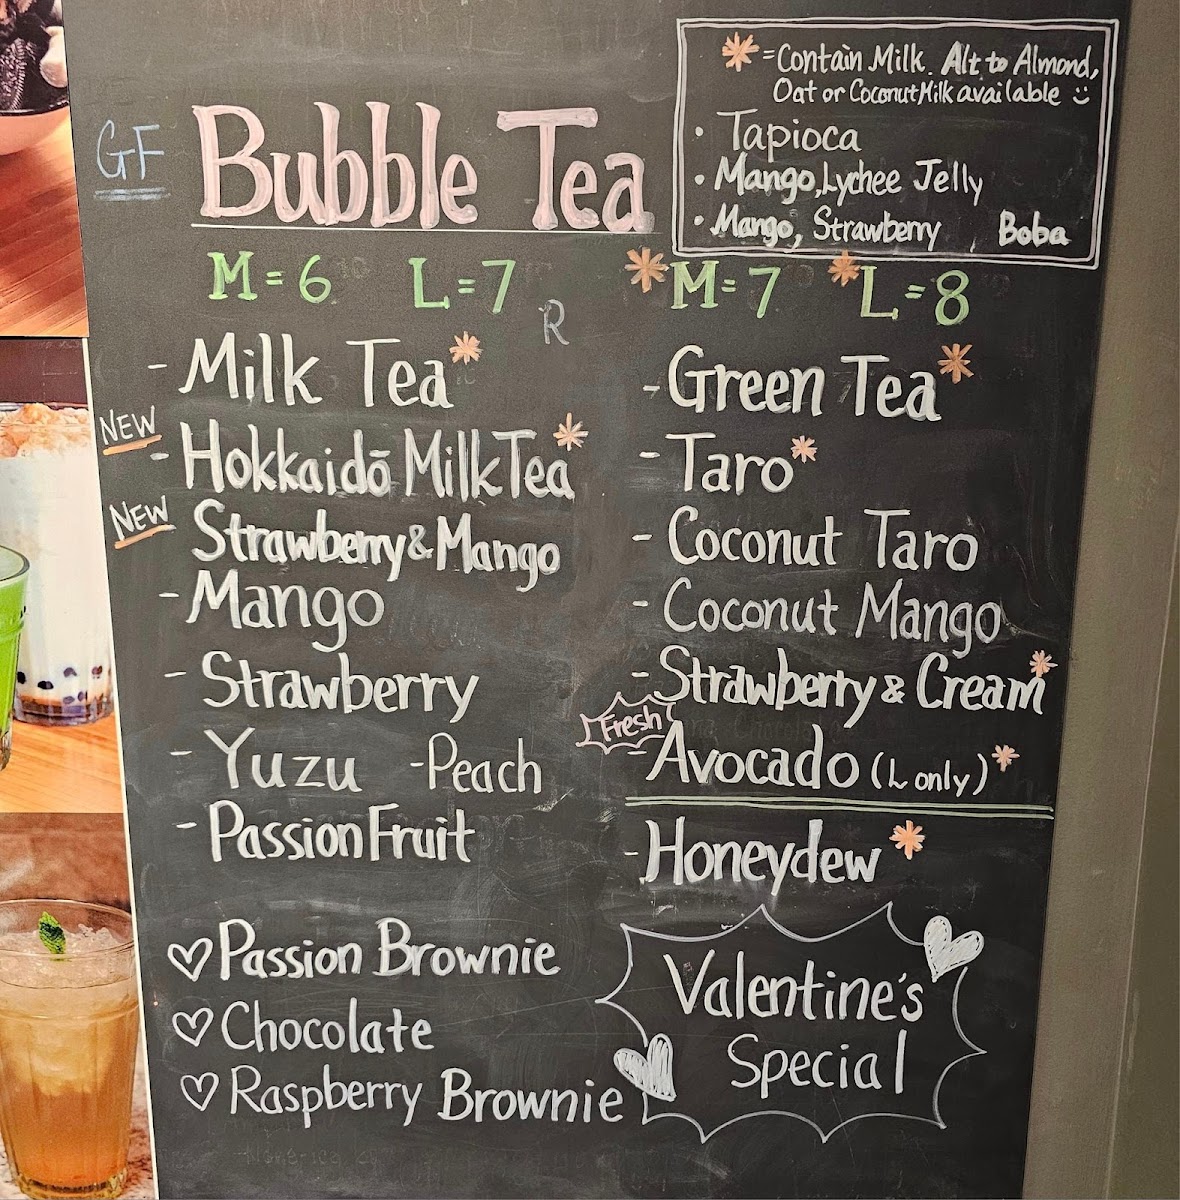 * = Contain Milk. Alt to Almond,
Oat or Coconut Milk available
• Tapioca
• Mango, Lychee Jelly
• Mango, Strawberry Boba
GF Bubble Tea
M = 6 L = 7
R
- Milk Tea*
NEW
- Hokkaidō Milk Tea*
NEW
Strawberry & Mango
- Mango
- Strawberry
- Yuzu - Peach
- Passion Fruit
♡ Passion Brownie
♡ Chocolate
♡ Raspberry Brownie
* M = 7 * L = 8
- Green Tea*
- Taro*
- Coconut Taro
- Coconut Mango
- Strawberry & Cream*
Fresh
- Avocado (L only)*
- Honeydew *
Valentine's
Special